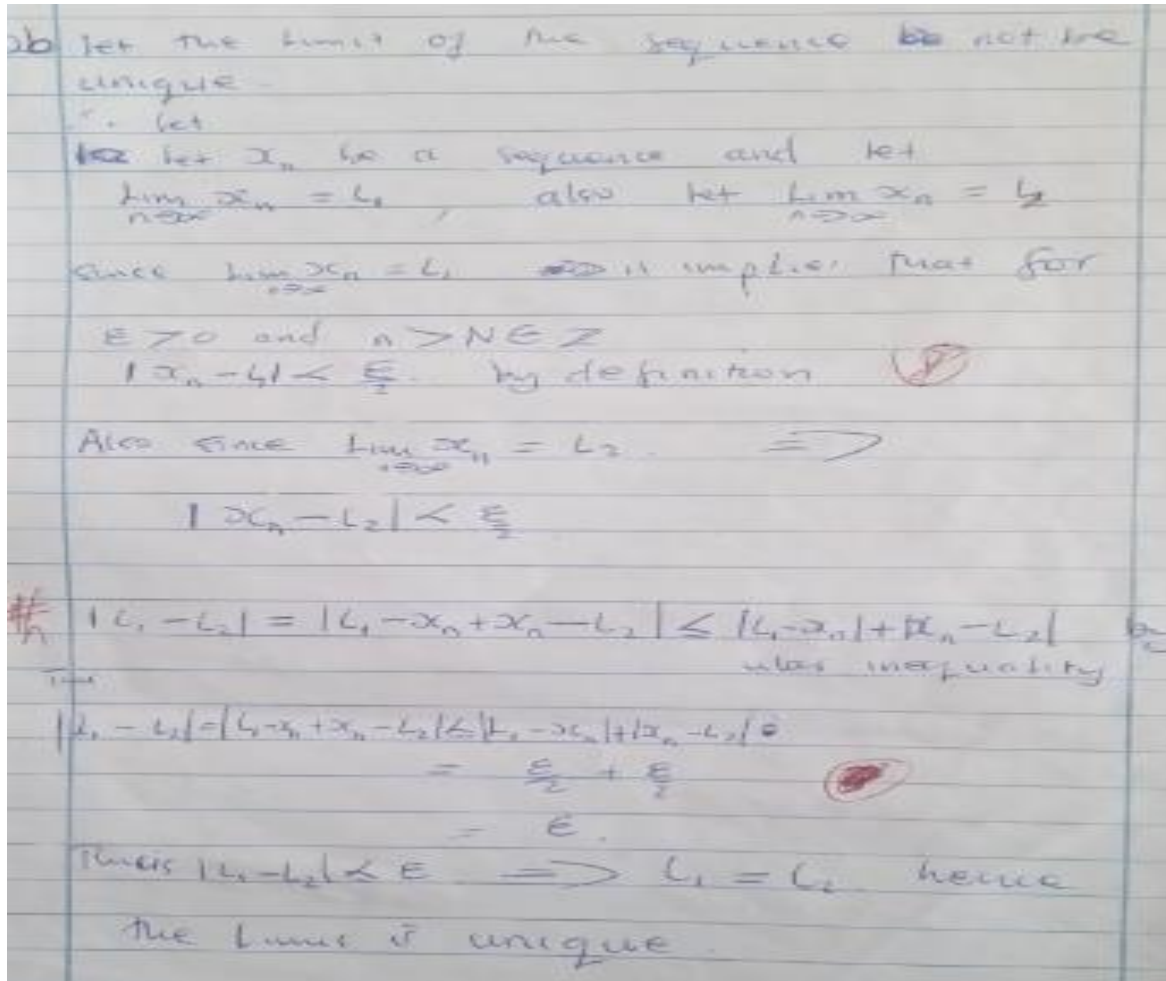 2b let the limit of the sequence be not be
unique.
∴ let
let xₙ be a sequence and let
Lim n→∞ xₙ = L₁, also let Lim n→∞ xₙ = L₂
Since Lim n→∞ xₙ = L₁ it implies that for
ε > 0 and n > N ∈ Z
|xₙ - L₁| < ε/2. by definition
Also since Lim n→∞ xₙ = L₂. ⇒
|xₙ - L₂| < ε/2
|L₁ - L₂| = |L₁ - xₙ + xₙ - L₂| ≤ |L₁ - xₙ| + |xₙ - L₂|
inequality
|L₁ - L₂| = |L₁ - xₙ + xₙ - L₂| ≤ |L₁ - xₙ| + |xₙ - L₂|
= ε/2 + ε/2
= ε.
|L₁ - L₂| < ε ⇒ L₁ = L₂ hence
the limit is unique.